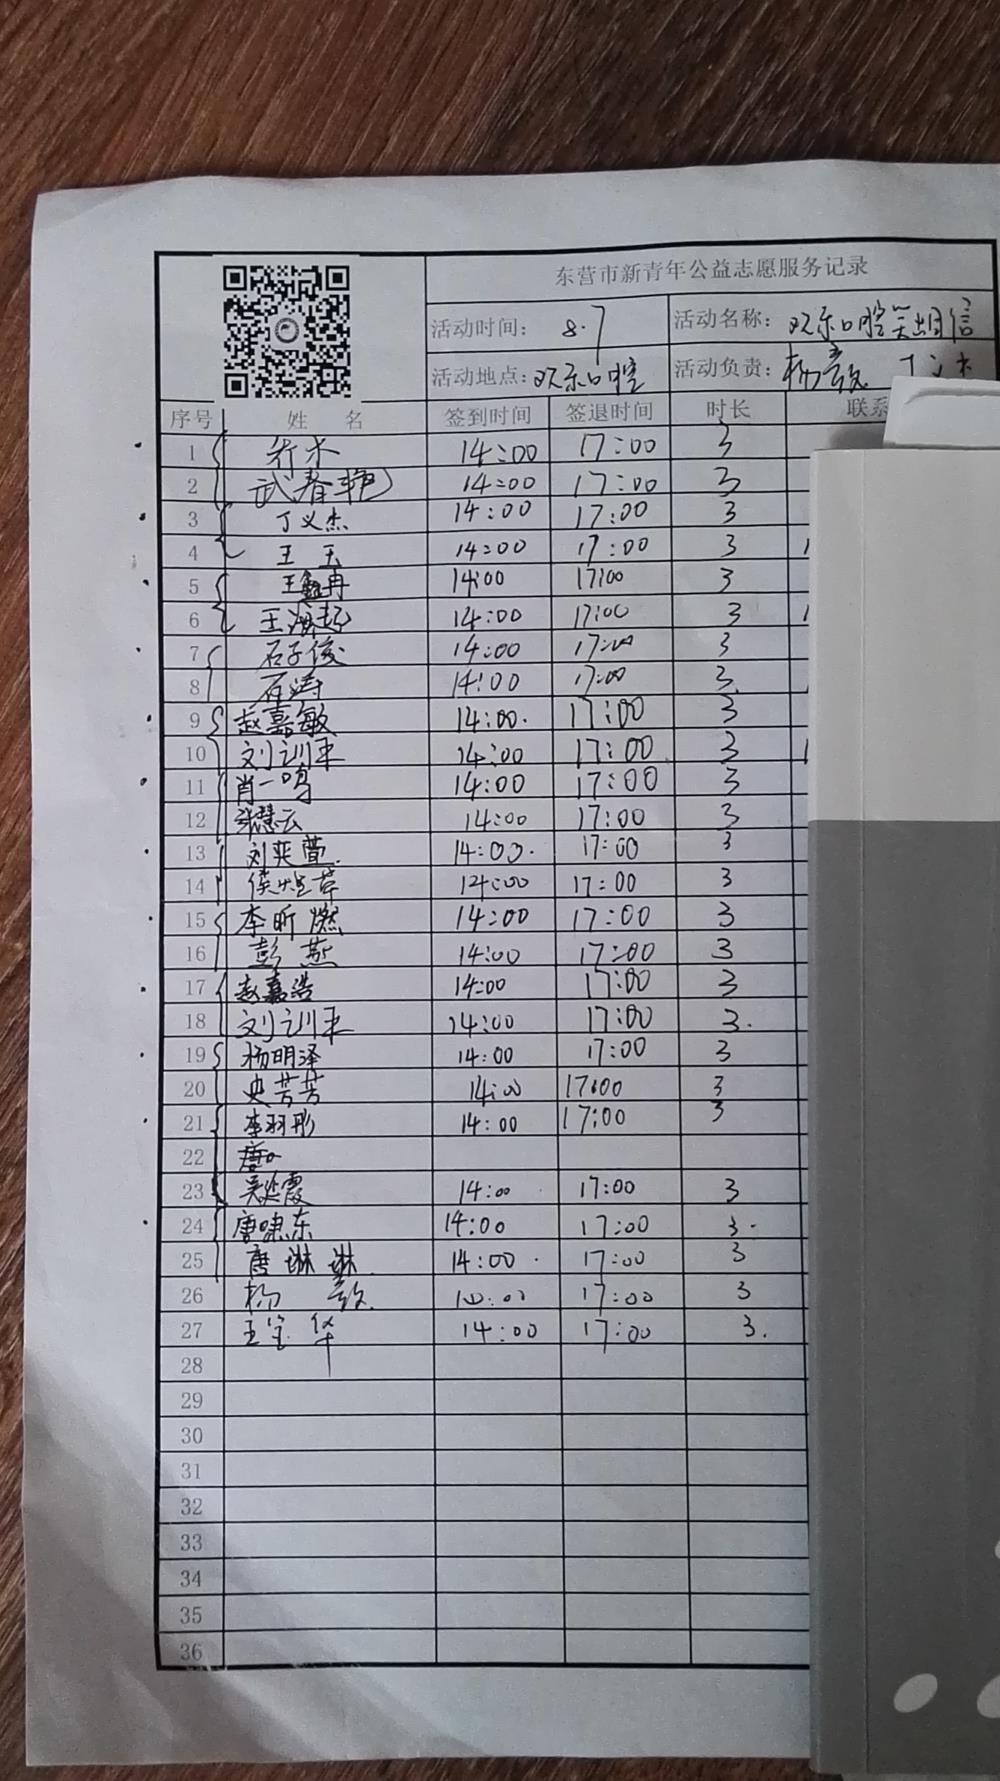 东营市新青年公益志愿服务记录
活动时间: 8.7 活动名称: 欢乐口腔 自信
活动地点: 欢乐口腔 活动负责: 杨 丁义杰
序号 姓 名 签到时间 签退时间 时长 联系
1 乔木 14:00 17:00 3
2 武春艳 14:00 17:00 3
3 丁义杰 14:00 17:00 3
4 王玉 14:00 17:00 3
5 王鑫冉 14:00 17:00 3
6 王海 14:00 17:00 3
7 石子俊 14:00 17:00 3
8 石涛 14:00 17:00 3
9 赵嘉敏 14:00 17:00 3
10 刘训平 14:00 17:00 3
11 肖一鸣 14:00 17:00 3
12 张慧云 14:00 17:00 3
13 刘奕萱 14:00 17:00 3
14 侯 14:00 17:00 3
15 李昕燃 14:00 17:00 3
16 彭燕 14:00 17:00 3
17 赵嘉浩 14:00 17:00 3
18 刘训平 14:00 17:00 3.
19 杨明泽 14:00 17:00 3
20 史芳芳 14:00 17:00 3
21 李羽彤 14:00 17:00 3
22
23 吴延霞 14:00 17:00 3
24 唐啸东 14:00 17:00 3.
25 唐琳琳 14:00 17:00 3
26 杨 17:00 3
27 王宝华 14:00 17:00 3.
28
29
30
31
32
33
34
35
36